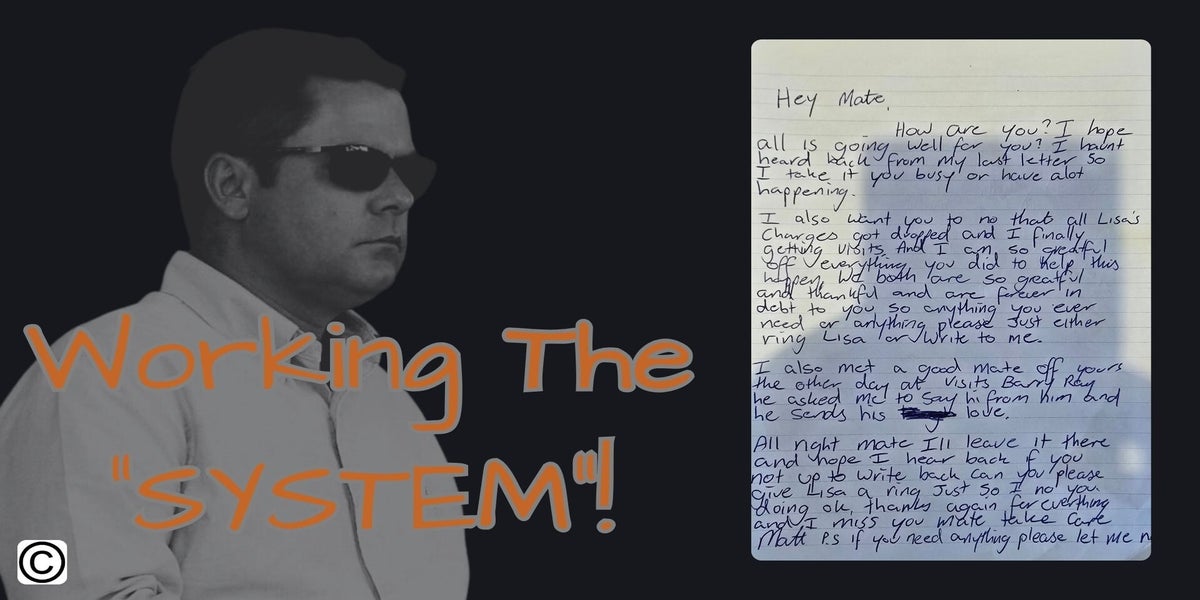 Working The
"SYSTEM"!
©
Hey Mate,
How are you? I hope
all is going well for you? I havnt
heard back from my last letter so
I take it you busy or have alot
happening.
I also want you to no that all Lisa's
Charges got dropped and I finally
getting visits. And I am so greatful
off everything you did to help this
happen. We both are so greatful
and thankful and are forever in
debt to you so anything you ever
need or anything please Just either
ring Lisa or Write to me.
I also met a good mate off yours
the other day at visits Barry Ray
he asked me to say hi from him and
he sends his love.
All right mate Ill leave it there
and hope I hear back if you
not up to write back can you please
give Lisa a ring Just so I no you
doing ok, thanks again for everything
and I miss you mate take care
Matt P.s if you need anything please let me